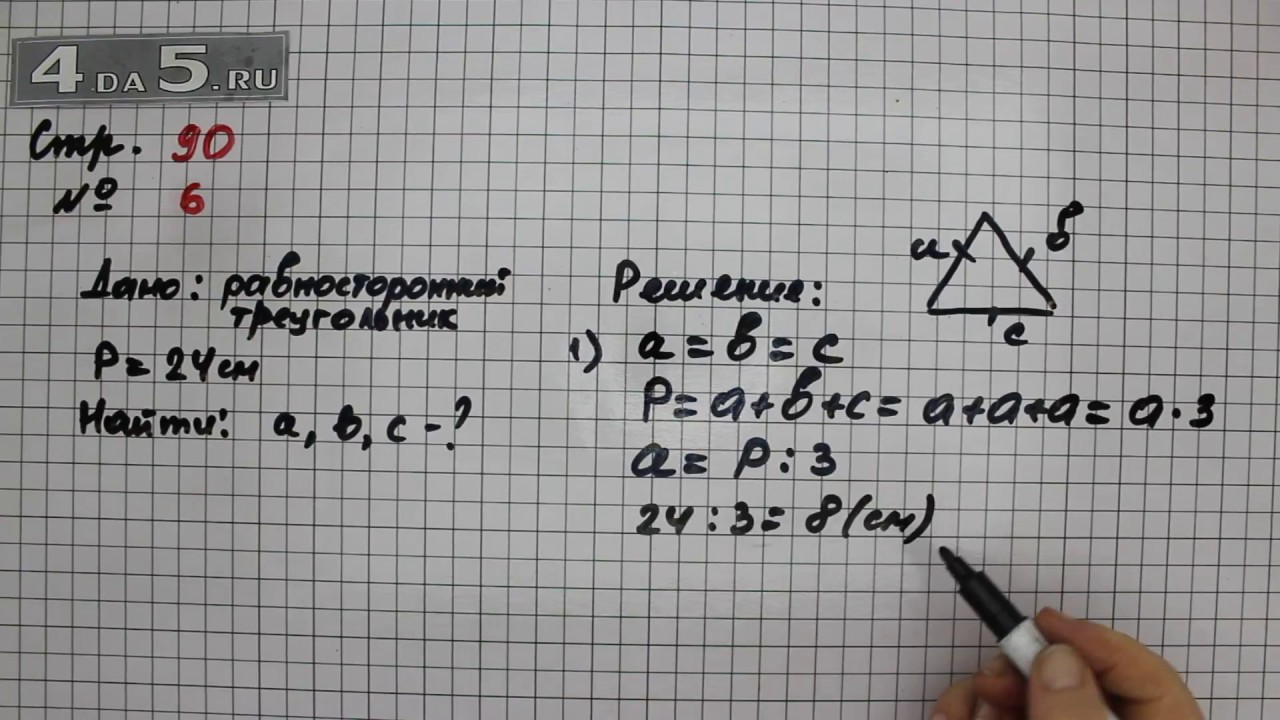 4 DA 5.RU
Стр. 90
№ 6
Дано: равносторонний
треугольник
P = 24 см
Найти: a, b, c - ?
a
б
c
Решение:
1) a = b = c
P = a + b + c = a + a + a = a · 3
a = P : 3
24 : 3 = 8 (см)